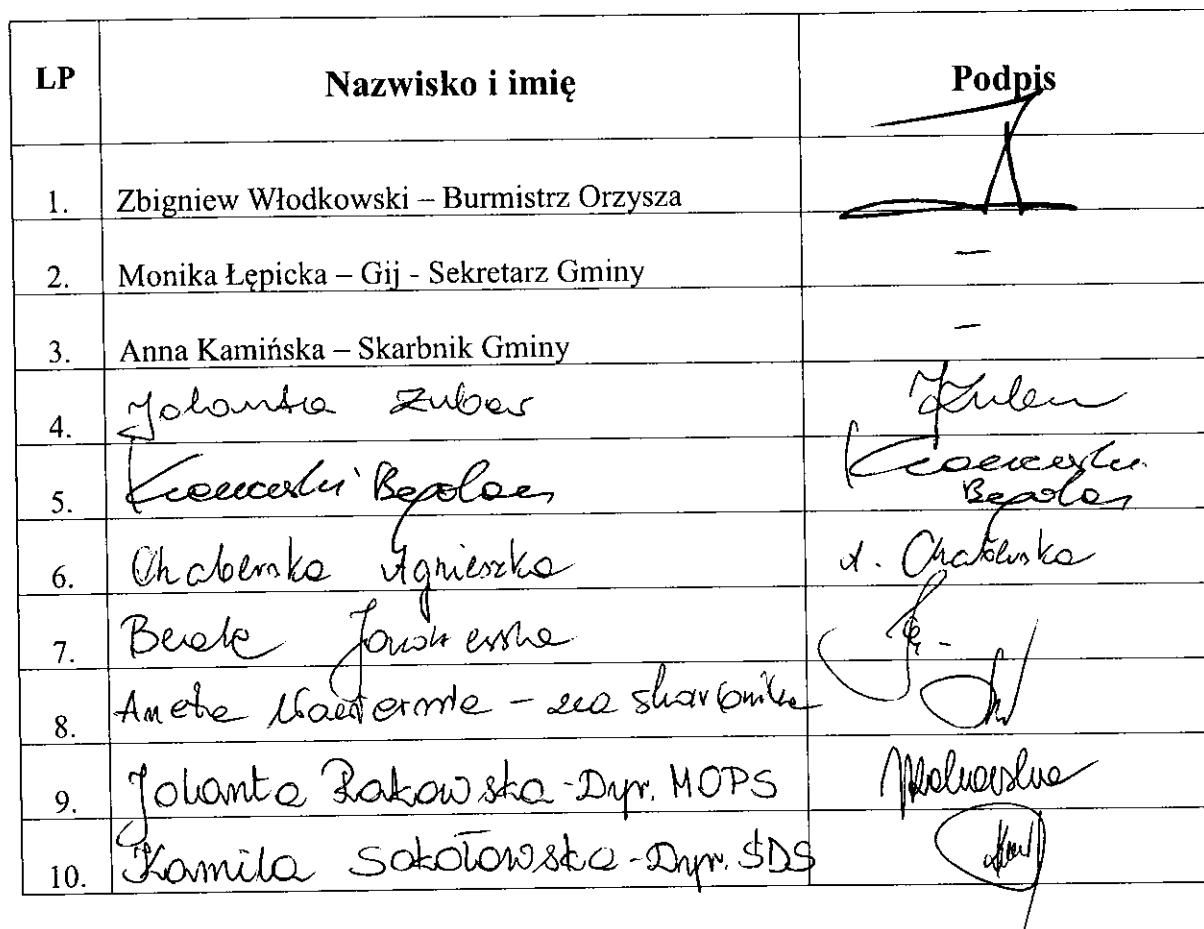 LP Nazwisko i imię Podpis
1. Zbigniew Włodkowski – Burmistrz Orzysza
2. Monika Łępicka – Gij - Sekretarz Gminy –
3. Anna Kamińska – Skarbnik Gminy –
4. Jolanta Zubar
5. Bogdan
Bogdan
6. Chaberska Agnieszka A. Chaberska
7. Beata
8. Aneta – za skarbnika
9. Jolanta Rakowska - Dyr. MOPS Rakowska
10. Kamila Sokołowska - Dyr. ŚDS